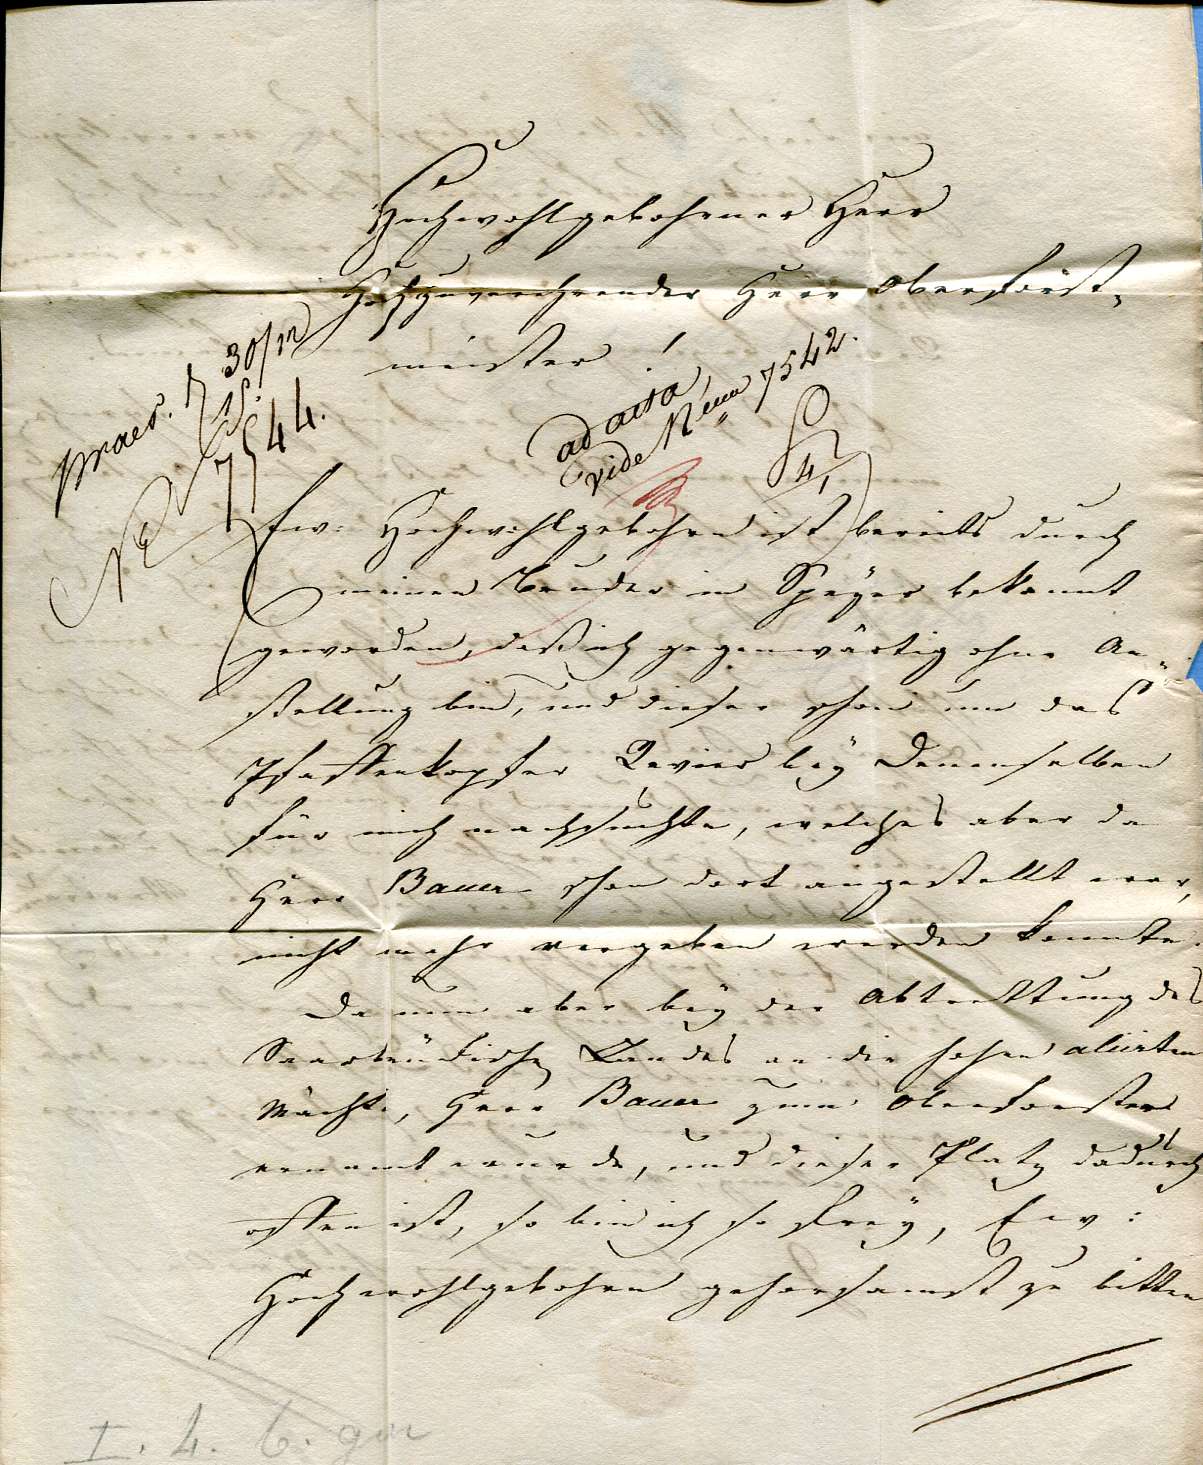 Hochwohlgebohrner Herr
Hochzuverehrender Herr Oberforst-
meister!
praes. d 30/12
15.
NE 7544.
ad acta
vide Nrum 7542.
Ew: Hochwohlgebohrn ist bereits durch
meinen Bruder in Speyer bekannt
geworden, daß ich gegenwärtig ohne An-
stellung bin, und dieser schon um das
Pfaffenkopfer Revier bey Denenselben
für mich nachsuchte, welches aber da
Herr Bauer schon dort angestellt war,
nicht mehr vergeben werden konnte.
Da nun aber bey der Abtrettung des
Saarbrückischen Landes an die hohen aliirten
Mächte, Herr Bauer zum Oberförster
ernannt wurde, und dieser Platz dadurch
offen ist, so bin ich so frey, Ew:
Hochwohlgebohrn gehorsamst zu bitten
I. 4. 6.